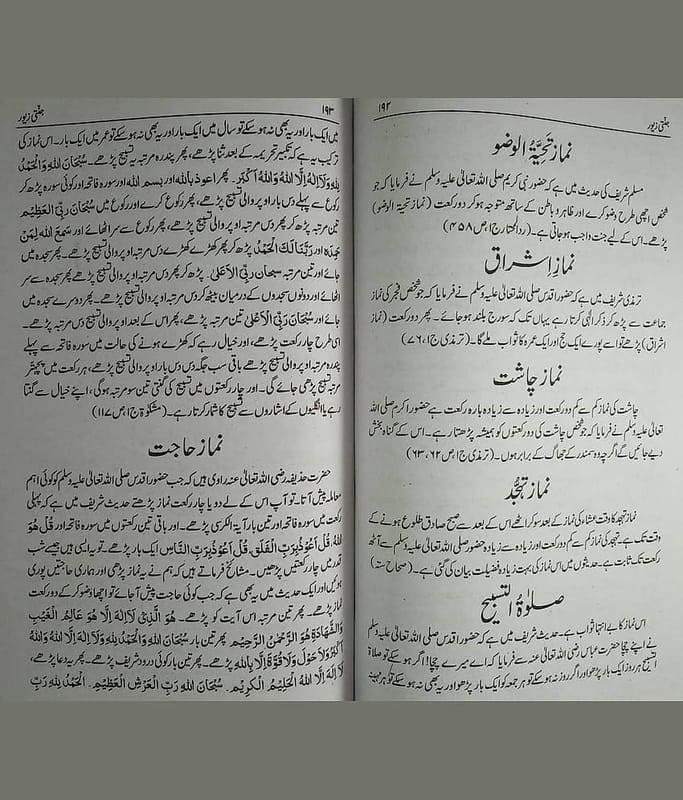 ۱۹۲
جنتی زیور
نماز تحیۃ الوضو
مسلم شریف کی حدیث میں ہے کہ حضور نبی کریم صلی اللہ تعالیٰ علیہ وسلم نے فرمایا کہ جو
شخص اچھی طرح وضو کرے اور ظاہر و باطن کے ساتھ متوجہ ہو کر دو رکعت (نماز تحیۃ الوضو)
پڑھے۔ اس کے لیے جنت واجب ہو جاتی ہے۔ (ردالمحتار ج ا ص ۴۵۸)
نمازِ اشراق
ترمذی شریف میں ہے کہ حضور اقدس صلی اللہ تعالیٰ علیہ وسلم نے فرمایا کہ جو شخص فجر کی نماز
جماعت سے پڑھ کر ذکر الٰہی کرتا رہے یہاں تک کہ سورج بلند ہو جائے۔ پھر دو رکعت (نماز
اشراق) پڑھے تو اسے پورے ایک حج اور ایک عمرہ کا ثواب ملے گا۔ (ترمذی ج ا ص ۷۶)
نماز چاشت
چاشت کی نماز کم سے کم دو رکعت اور زیادہ سے زیادہ بارہ رکعت ہے حضور اکرم صلی اللہ
تعالیٰ علیہ وسلم نے فرمایا کہ جو شخص چاشت کی دو رکعتوں کو ہمیشہ پڑھتا رہے۔ اس کے گناہ بخش
دیے جائیں گے اگرچہ وہ سمندر کے جھاگ کے برابر ہوں۔ (ترمذی ج ا ص ۶۲، ۶۳)
نماز تہجد
نماز تہجد کا وقت عشاء کی نماز کے بعد سو کر اٹھے اس کے بعد سے صبح صادق طلوع ہونے کے
وقت تک ہے۔ تہجد کی نماز کم سے کم دو رکعت اور زیادہ سے زیادہ حضور صلی اللہ تعالیٰ علیہ وسلم سے آٹھ
رکعت تک ثابت ہے۔ حدیثوں میں اس نماز کی بہت زیادہ فضیلت بیان کی گئی ہے۔ (صحاح ستہ)
صلوٰۃ التسبیح
اس نماز کا بے انتہا ثواب ہے۔ حدیث شریف میں ہے کہ حضور اقدس صلی اللہ تعالیٰ علیہ وسلم
نے اپنے چچا حضرت عباس رضی اللہ تعالیٰ عنہ سے فرمایا کہ اے میرے چچا! اگر ہو سکے تو صلاۃ
التسبیح ہر روز ایک بار پڑھو اور اگر روز نہ ہو سکے تو ہر جمعہ کو ایک بار پڑھو اور یہ بھی نہ ہو سکے تو ہر مہینہ
۱۹۳
جنتی زیور
میں ایک بار اور یہ بھی نہ ہو سکے تو سال میں ایک بار اور یہ بھی نہ ہو سکے تو عمر میں ایک بار۔ اس نماز کی
ترکیب یہ ہے کہ تکبیر تحریمہ کے بعد ثنا پڑھے، پھر پندرہ مرتبہ یہ تسبیح پڑھے۔ سُبْحَانَ اللهِ وَالْحَمْدُ
لِلّٰهِ وَلَآ اِلٰهَ اِلَّا اللهُ وَاللهُ اَکْبَر۔ پھر اعوذ باللہ اور بسم اللہ اور سورہ فاتحہ اور کوئی سورہ پڑھ کر
رکوع سے پہلے دس بار اوپر والی تسبیح پڑھے، پھر رکوع کرے اور رکوع میں سُبْحَانَ رَبِّیَ الْعَظِیْم
تین مرتبہ پڑھ کر پھر دس مرتبہ اوپر والی تسبیح پڑھے۔ پھر رکوع سے سر اٹھائے اور سَمِعَ اللهُ لِمَنْ
حَمِدَهٗ اور رَبَّنَا لَكَ الْحَمْدُ پڑھ کر پھر کھڑے کھڑے دس مرتبہ اوپر والی تسبیح پڑھے۔ پھر سجدہ میں
جائے اور تین مرتبہ سبحان ربی الاعلیٰ پڑھ کر پھر دس مرتبہ اوپر والی تسبیح پڑھے پھر سجدہ سے سر
اٹھائے اور دونوں سجدوں کے درمیان بیٹھ کر دس مرتبہ اوپر والی تسبیح پڑھے۔ پھر دوسرے سجدہ میں
جائے اور سُبْحَانَ رَبِّیَ الْاَعْلٰی تین مرتبہ پڑھے، پھر اس کے بعد اوپر والی تسبیح دس مرتبہ پڑھے۔
اسی طرح چار رکعت پڑھے، اور خیال رہے کہ کھڑے ہونے کی حالت میں سورہ فاتحہ سے پہلے
پندرہ مرتبہ اوپر والی تسبیح پڑھے باقی سب جگہ دس دس بار پڑھے، ہر رکعت میں پچھتر
مرتبہ تسبیح پڑھی جائے گی۔ اور چار رکعتوں میں تسبیح کی گنتی تین سو مرتبہ ہوگی، اپنے خیال سے گنتا
رہے یا انگلیوں کے اشاروں سے تسبیح کا شمار کرتا رہے۔ (مشکوٰۃ ج ا ص ۱۱۷)
نماز حاجت
حضرت حذیفہ رضی اللہ تعالیٰ عنہ راوی ہیں کہ جب حضور اقدس صلی اللہ تعالیٰ علیہ وسلم کو کوئی اہم
معاملہ پیش آتا۔ تو آپ اس کے لیے دو یا چار رکعت نماز پڑھتے حدیث شریف میں ہے کہ پہلی
رکعت میں سورہ فاتحہ اور تین بار آیۃ الکرسی پڑھے۔ اور باقی تین رکعتوں میں سورہ فاتحہ اور قُلْ هُوَ
اللهُ قُلْ اَعُوْذُ بِرَبِّ الْفَلَقِ، قُلْ اَعُوْذُ بِرَبِّ النَّاسِ ایک بار پڑھے۔ تو یہ ایسی ہیں جیسے شب
قدر میں چار رکعتیں پڑھیں۔ مشائخ فرماتے ہیں کہ ہم نے یہ نماز پڑھی اور ہماری حاجتیں پوری
ہوئیں اور ایک حدیث میں یہ بھی ہے کہ جب کوئی حاجت پیش آجائے تو اچھا وضو کر کے دو رکعت
نماز پڑھے۔ پھر تین مرتبہ اس آیت کو پڑھے۔ هُوَ الَّذِیْ لَآ اِلٰهَ اِلَّا هُوَ عَالِمُ الْغَیْبِ
وَالشَّهَادَةِ هُوَ الرَّحْمٰنُ الرَّحِیْم پھر تین بار سُبْحَانَ اللهِ وَالْحَمْدُ لِلّٰهِ وَلَآ اِلٰهَ اِلَّا اللهُ وَاللهُ
اَکْبَرُ وَلَا حَوْلَ وَلَا قُوَّةَ اِلَّا بِاللهِ پڑھے۔ پھر تین بار کوئی درود شریف پڑھے۔ پھر یہ دعا پڑھے،
لَآ اِلٰهَ اِلَّا اللهُ الْحَلِیْمُ الْکَرِیْم۔ سُبْحَانَ اللهِ رَبِّ الْعَرْشِ الْعَظِیْم۔ اَلْحَمْدُ لِلّٰهِ رَبِّ